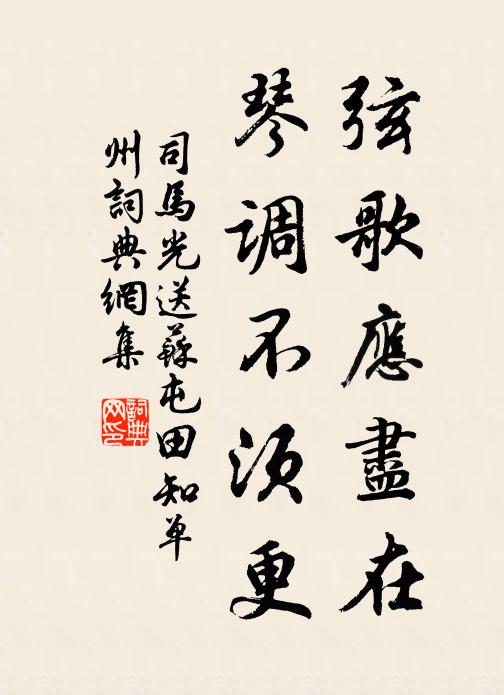 弦歌應盡在
琴调不須更
司馬光送蘇屯田知单
州詞典網集
詞典
网印